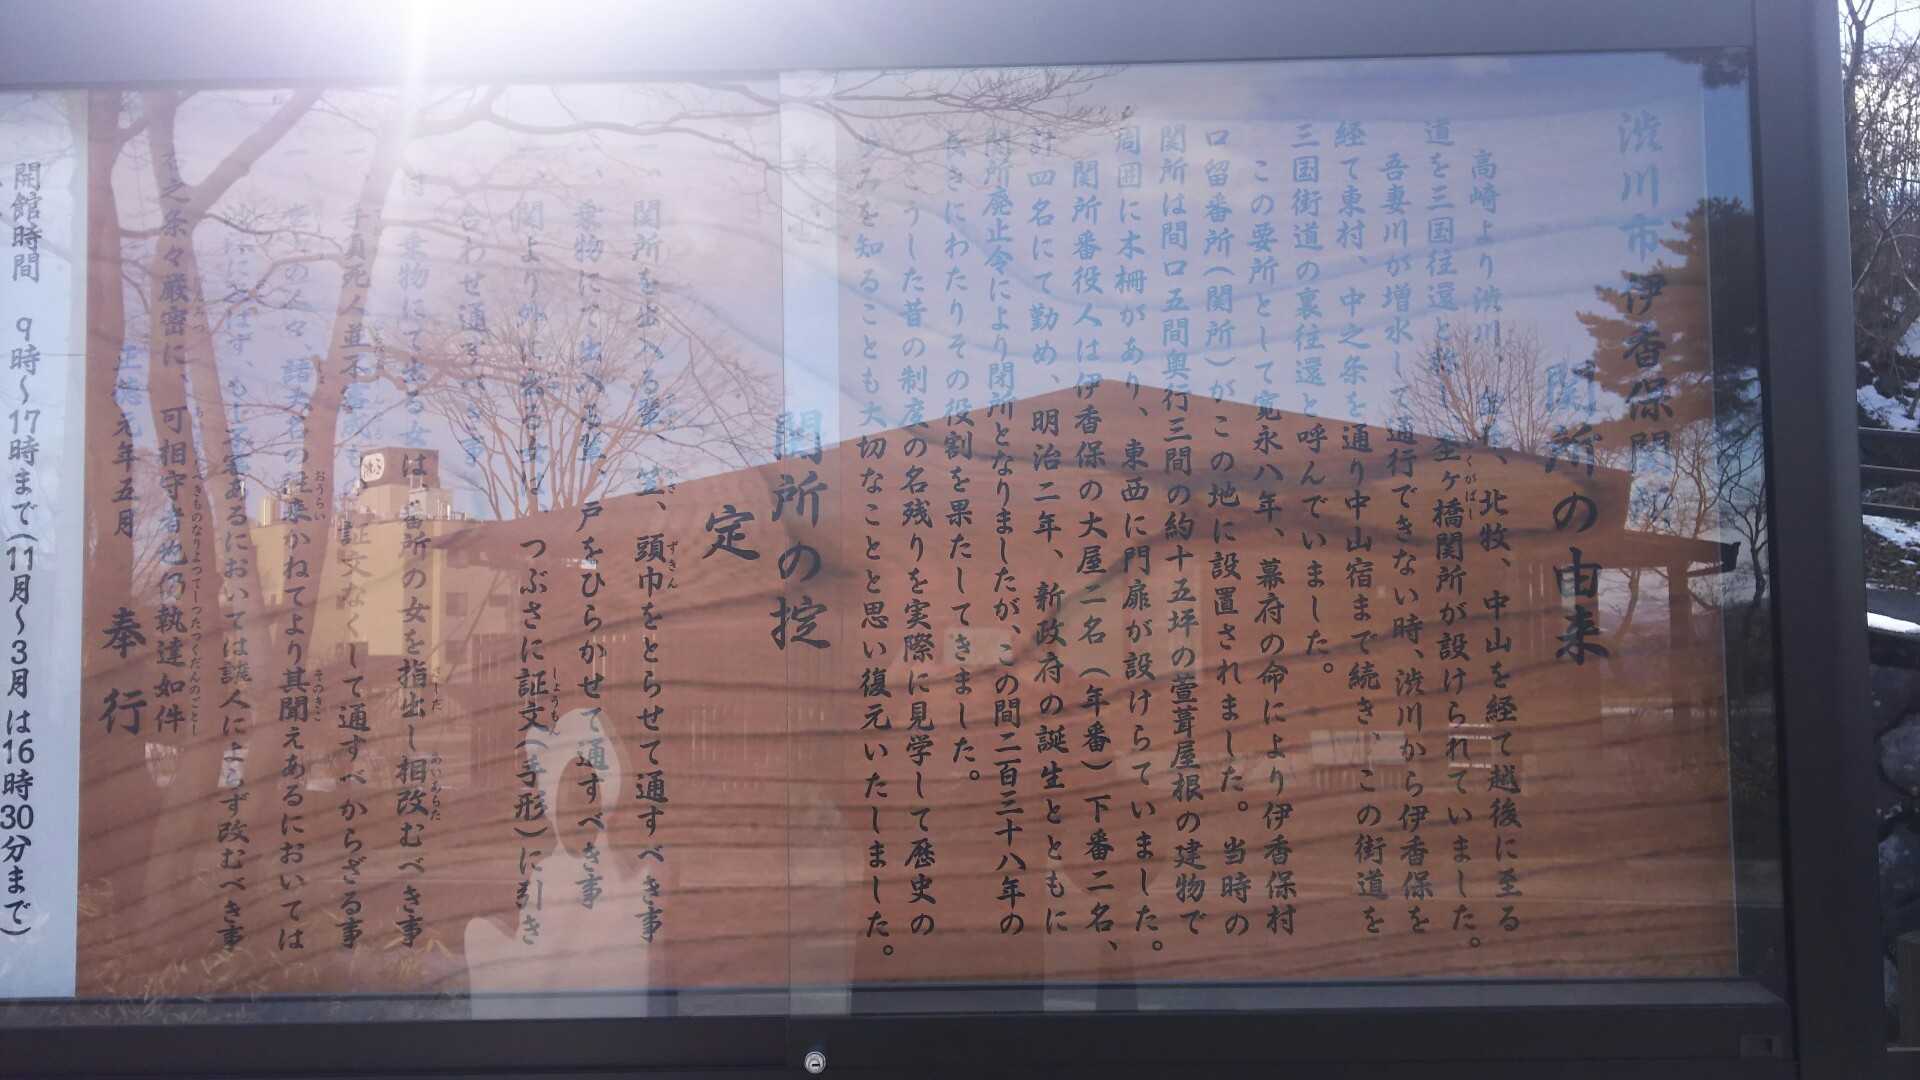 渋川市 伊香保関
関所の由来
高崎より渋川、北牧、中山を経て越後に至る
道を三国往還と杢ヶ橋関所が設けられていました。
くがばし
吾妻川が増水して通行できない時、渋川から伊香保を
経て東村、中之条を通り中山宿まで続き、この街道を
三国街道の裏往還と呼んでいました。
この要所として寛永八年、幕府の命により伊香保村
口留番所(関所)がこの地に設置されました。当時の
関所は間口五間奥行三間の約十五坪の萱葺屋根の建物で
周囲に木柵があり、東西に門扉が設けらていました。
関所番役人は伊香保の大屋二名(年番)下番二名、
計四名にて勤め、明治二年、新政府の誕生とともに
関所廃止令により閉所となりましたが、この間二百三十八年の
長きにわたりその役割を果たしてきました。
こうした昔の制度の名残りを実際に見学して歴史の
重みを知ることも大切なことと思い復元いたしました。
関所の掟
定
一、関所を出入る輩、笠、頭巾をとらせて通すべき事
かさ
ずきん
一、乗物にて出入る輩、戸をひらかせて通すべき事
一、関より外に出る女は、つぶさに証文(手形)に引き
しょうもん
合わせ通すべき事
乗物にて出る女は、番所の女を指出し相改むべき事
さしだ
あいあらた
手負死人並不審成証文なくして通すべからざる事
の人々、諸大名の往来かねてより其聞えあるにおいては
しょ
おうらい
そのきこ
に及ばず、もし不審あるにおいては誰人によらず改むべき事
之条々厳密に、可相守者也仍執達如件
あいまもるべきものなりよつてしつたつくだんのごとし
正徳元年五月
奉行
開館時間 9時〜17時まで(11月〜3月は16時30分まで)